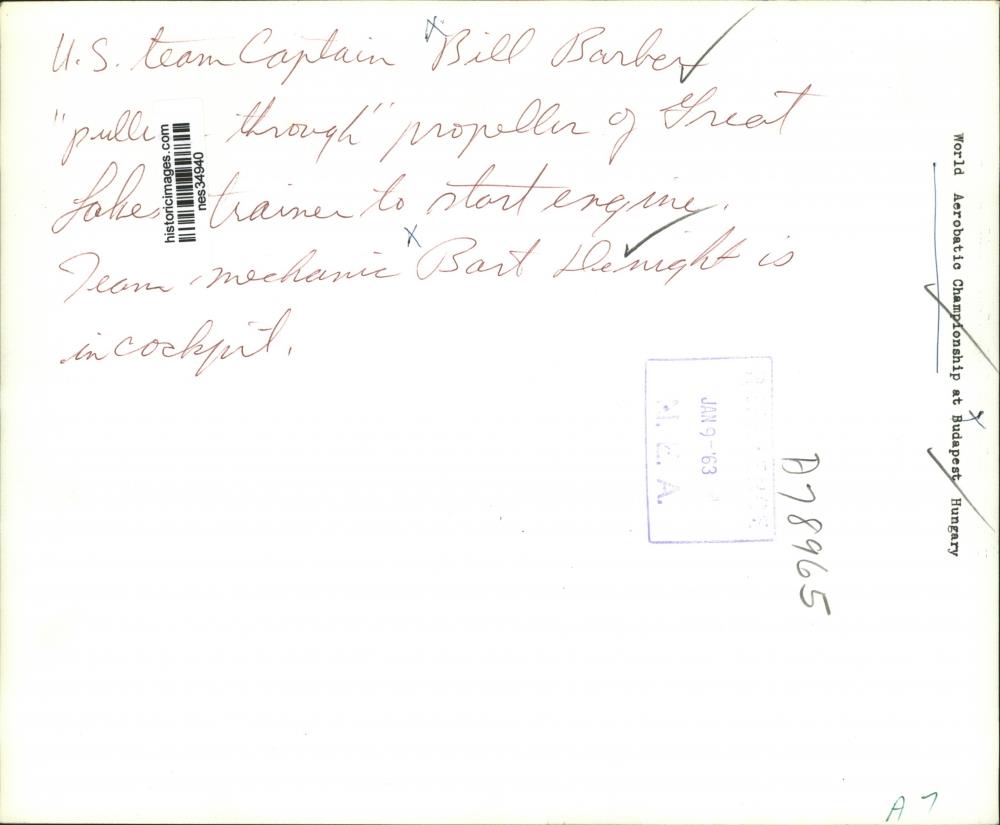 U.S. team Captain Bill Barber
"pulls through" propeller of Great
Lakes trainer to start engine.
Team mechanic Bart Denight is
in cockpit.
historicimages.com
nes34940
World Aerobatic Championship at Budapest Hungary
JAN 9-'63
N.E.A.
A78965
A 7